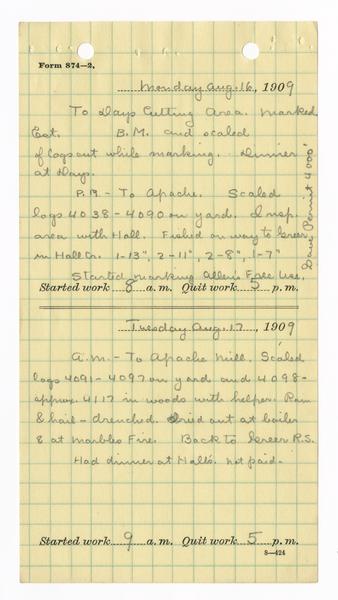 Form 874—2.
Monday Aug. 16, 1909
To Days Cutting Area. Marked
Est. B.M. and scaled
of logs out while marking. Dinner
at Days.
P.M. - To Apache. Scaled
logs 4038 - 4090 on yard. Insp.
area with Hall. Fished on way to Greer
in Hall Cr. 1-13", 2-11", 2-8", 1-7"
Started marking Allen's Free Use.
Dave Permit 4000'
Started work 8 a.m. Quit work 5 p.m.
Tuesday Aug. 17, 1909
A.M. - To Apache Mill. Scaled
logs 4091 - 4097 on yard and 4098 -
approx. 4117 in woods with helper. Rain
& hail - drenched. Dried out at boiler
& at Marbles Fire. Back to Greer R.S.
Had dinner at Hall's. not paid.
Started work 9 a.m. Quit work 5 p.m.
8—424